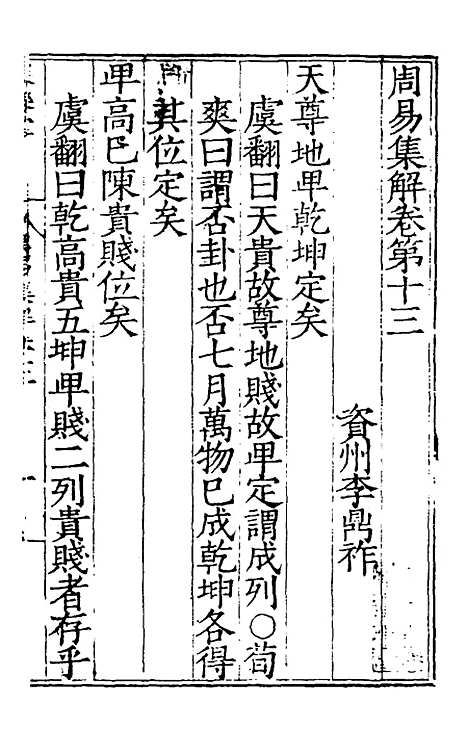 周易集解卷第十三
資州李鼎祚
天尊地卑乾坤定矣
虞翻曰天貴故尊地賤故卑定謂成列○荀
爽曰謂否卦也否七月萬物已成乾坤各得
其位定矣
卑高已陳貴賤位矣
虞翻曰乾高貴五坤卑賤二列貴賤者存乎